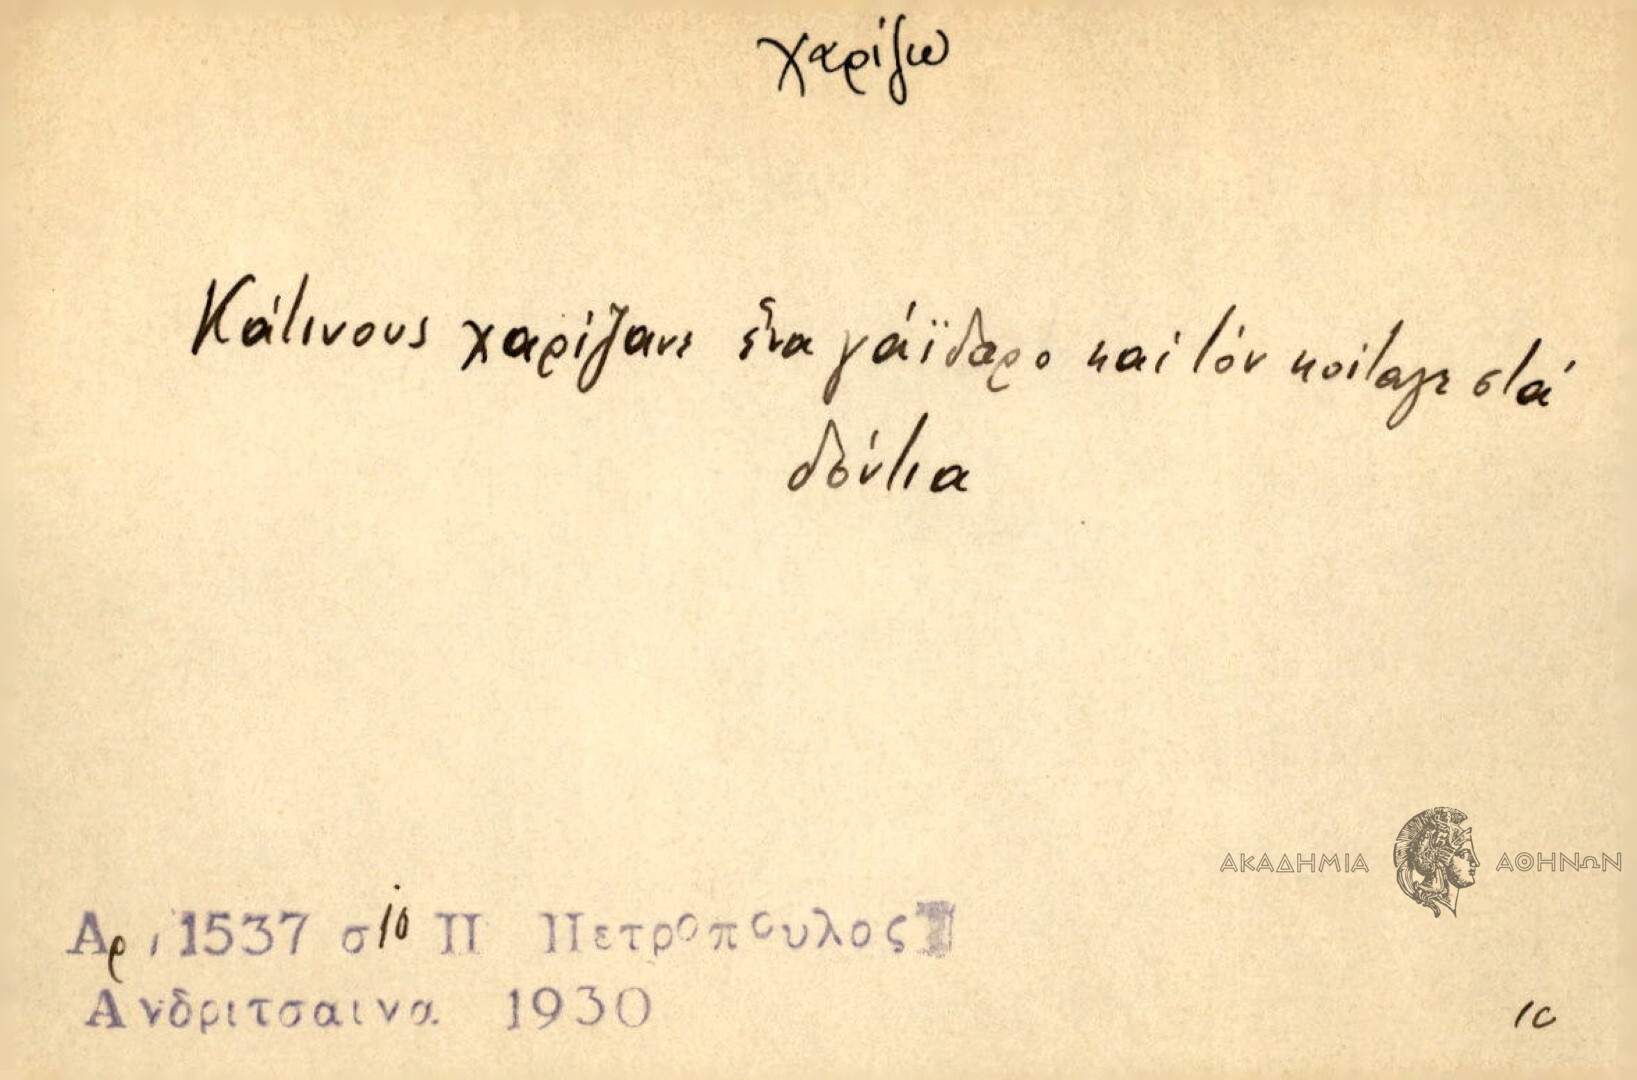 χαρίζω
Κάτινους χαρίζανε ἕνα γάϊδαρο καί τόν κοίταγε στά
δόντια
ΑΚΑΔΗΜΙΑ ΑΘΗΝΩΝ
Αρ. 1537 σ 10 Π Πετροπουλος
Ανδριτσαινα 1930